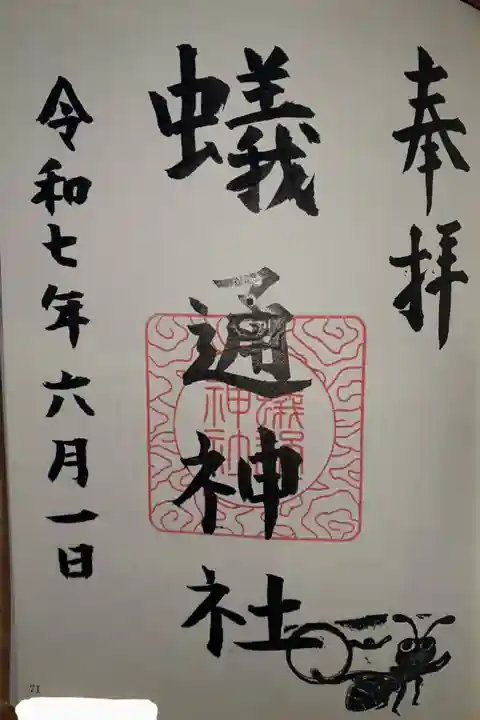 奉拝
蟻通神社
令和七年六月一日
71